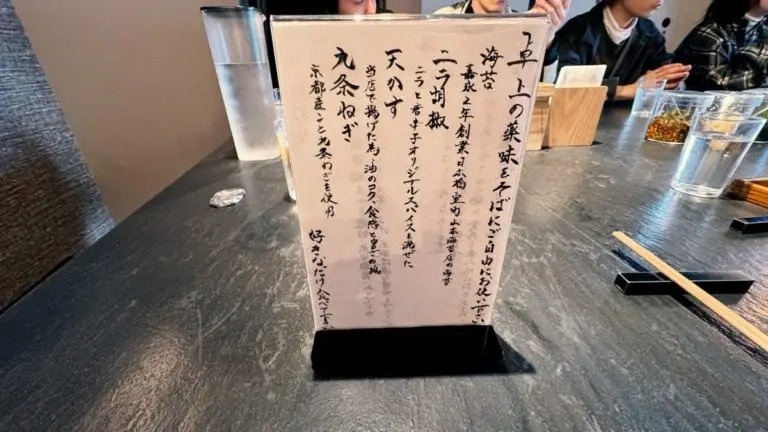 卓上の薬味をそばにご自由にお使い下さい
海苔
嘉永2年創業日本橋室町山本海苔店の海苔
ニラ胡椒
ニラと青辛子オリジナルスパイスを混ぜた
天かす
当店で揚げた為、油のコク、食感と
九条ねぎ
京都産 九条ねぎを使用
好きなだけ食べて下さい